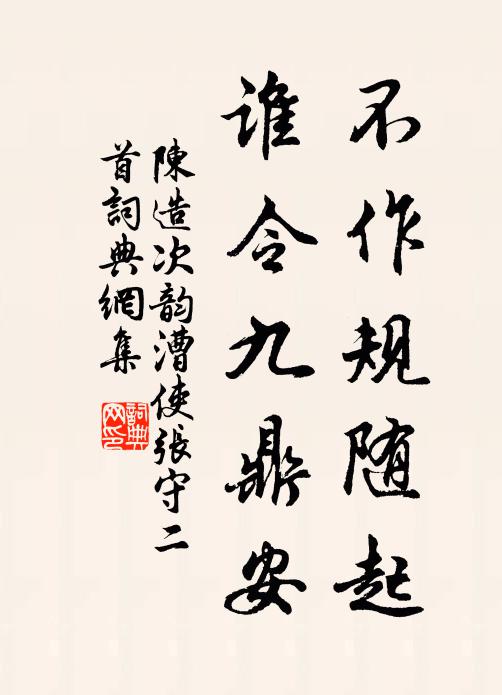 不作规随起
谁令九鼎安
陳造次韵漕使張守二
首詞典網集
詞典網印